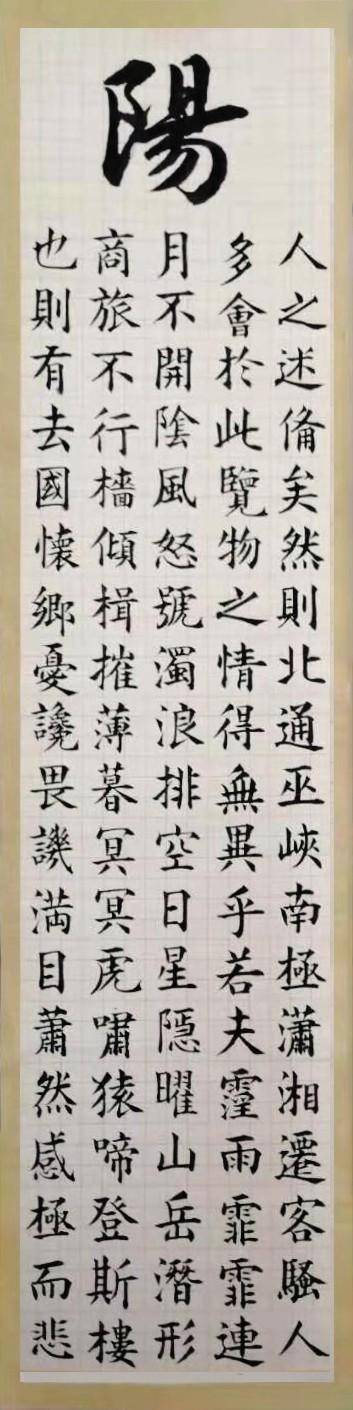 陽
人之述備矣然則北通巫峽南極瀟湘遷客騷人
多會於此覽物之情得無異乎若夫霪雨霏霏連
月不開陰風怒號濁浪排空日星隱曜山岳潛形
商旅不行檣傾楫摧薄暮冥冥虎嘯猿啼登斯樓
也則有去國懷鄉憂讒畏譏満目蕭然感極而悲